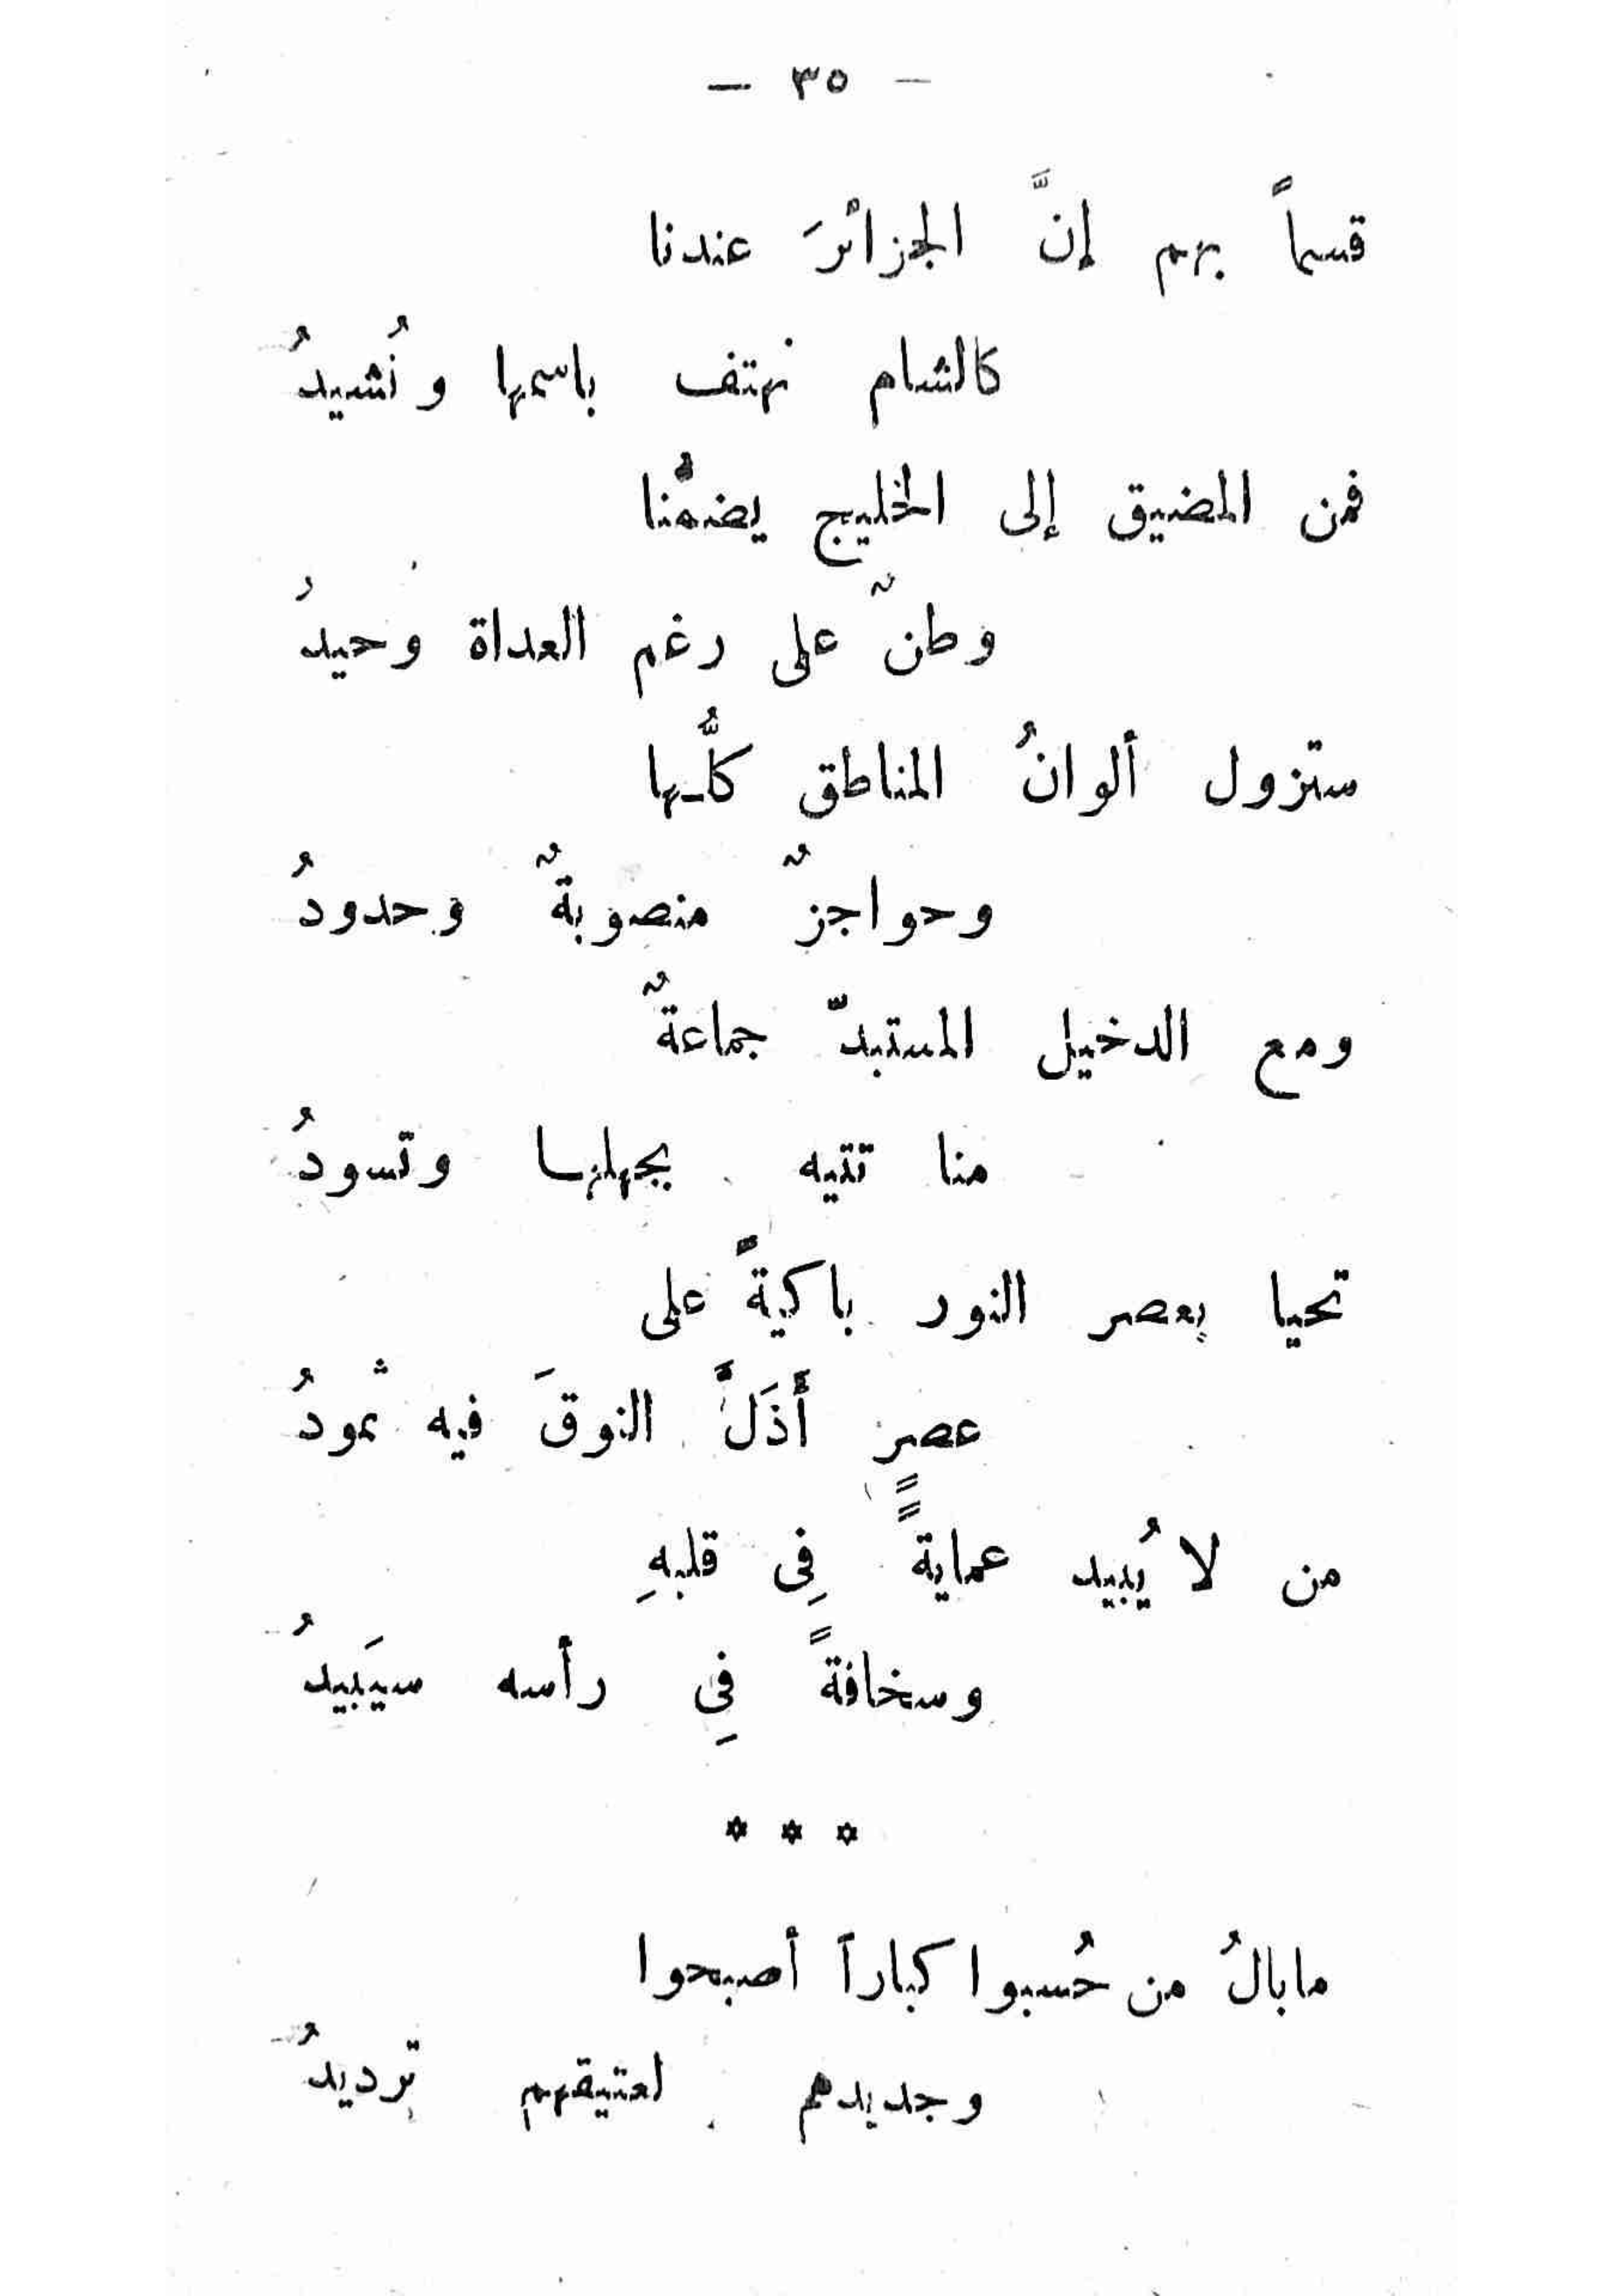 — ٣٥ —
قسماً بهم إنَّ الجزائرَ عندنا
كالشام نهتف باسمها ونُشيدُ
فمن المضيق إلى الخليج يضمُّنا
وطنٌ على رغم العداة وحيدُ
ستزول ألوانُ المناطق كلُّها
وحواجزٌ منصوبةٌ وحدودُ
ومع الدخيل المستبدّ جماعةٌ
منا تتيه بجهلها وتسودُ
تحيا بعصر النور باكيةً على
عصرٍ أَذَلَّ النوقَ فيه ثمودُ
من لا يُبيد عمايةً فِي قلبهِ
وسخافةً فِي رأسه سيَبيدُ
* * *
مابالُ من حُسبوا كباراً أصبحوا
وجديدهم لعتيقهم ترديدُ